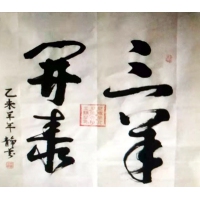 三羊
開泰
乙未羊年 靜書